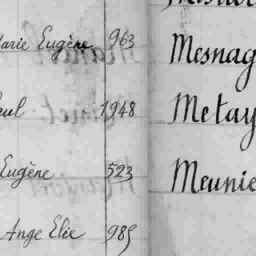 Marie Eugène 963 Mesnag
eul 1948 Metay
Eugène 523 Meunie
Ange Elie 985